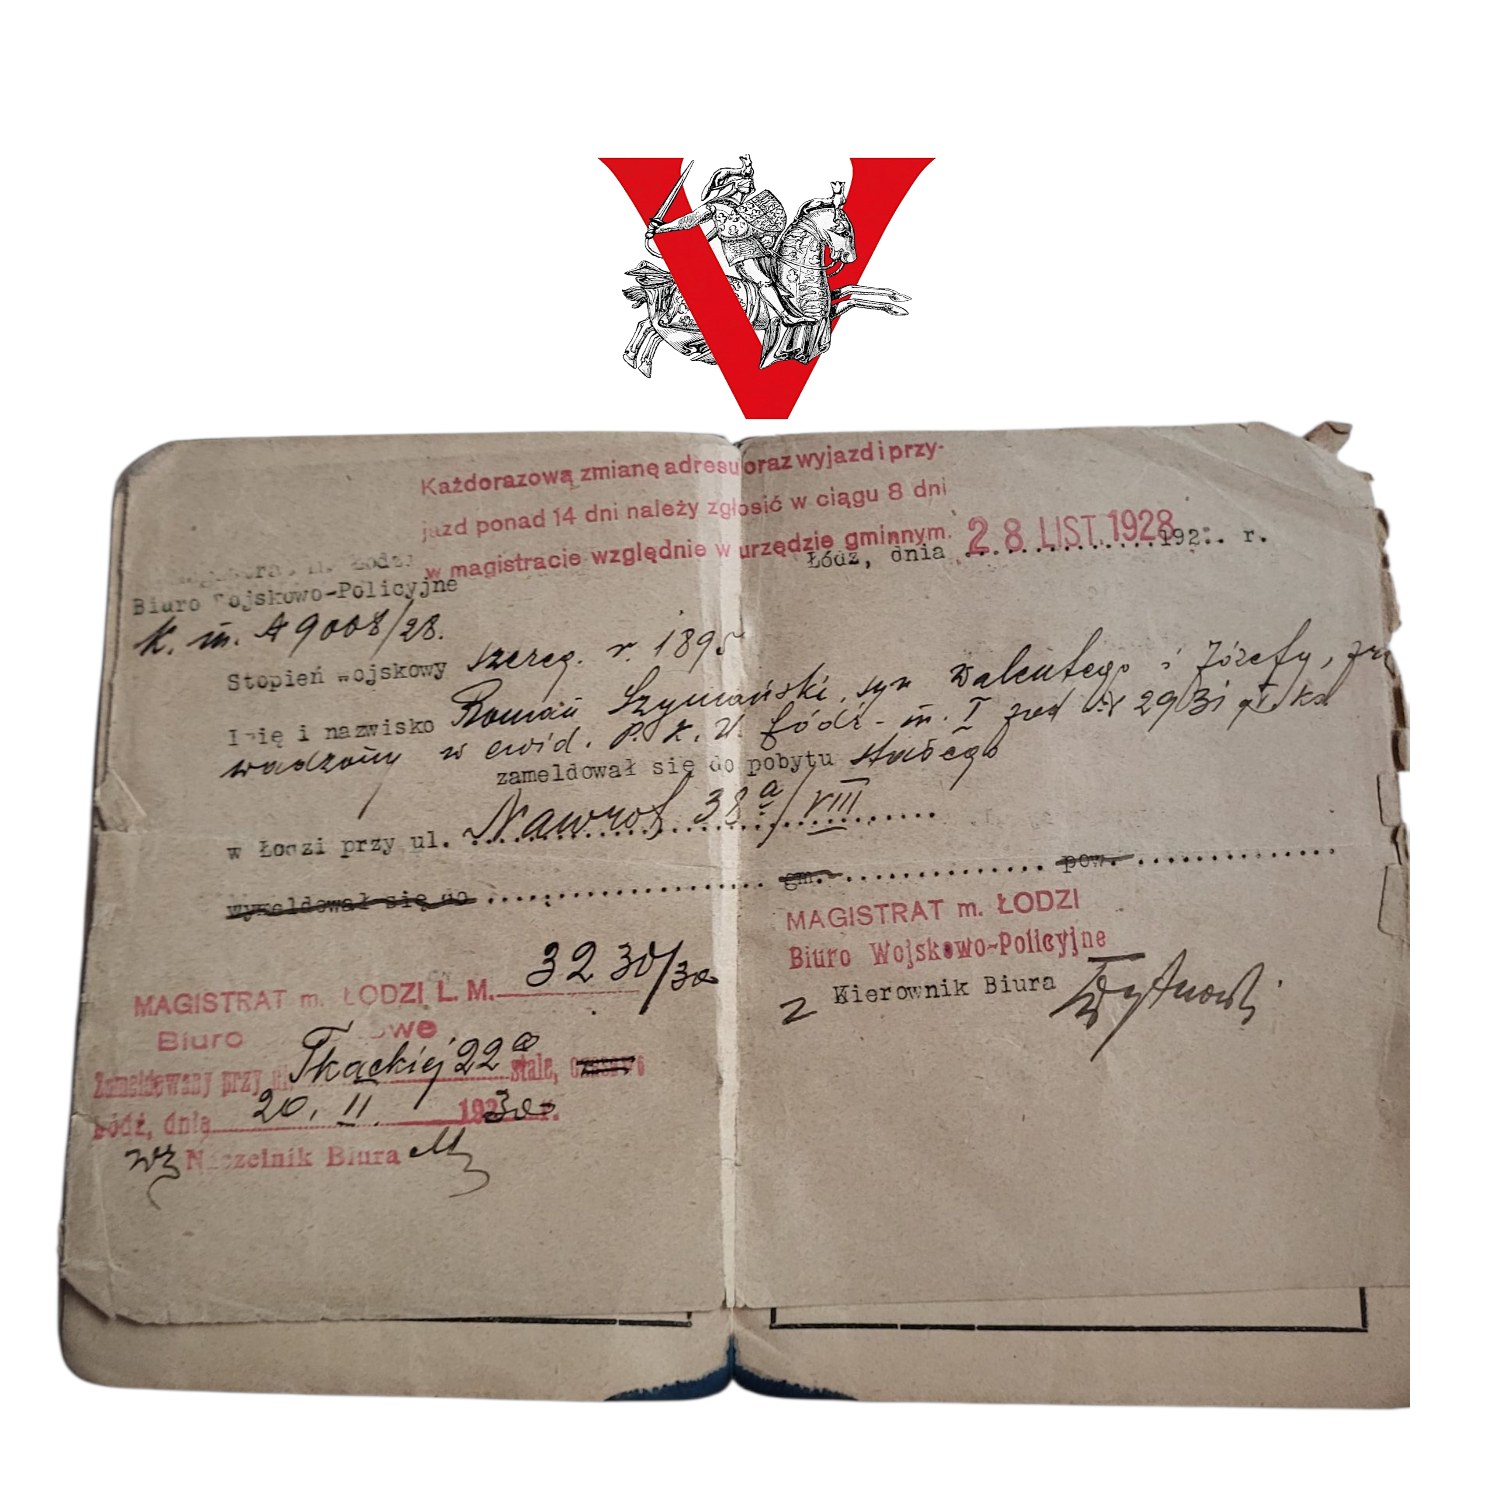 V
Każdorazową zmianę adresu oraz wyjazd i przy-
jazd ponad 14 dni należy zgłosić w ciągu 8 dni
w magistracie względnie w urzędzie gminnym.
Łódź, dnia 28 LIST. 1928 192 . r.
m. Łodzi
Biuro Wojskowo-Policyjne
K. m. A 9008/28.
Stopień wojskowy szereg. r. 1895
Imię i nazwisko Roman Szymański, syn Walentego i Józefy, pro
wadzony w ewid. P. K. U. Łódź - m. I pod Nr 2931
zameldował się do pobytu stałego
w Łodzi przy ul. Nawrot 38a/VIII
wymeldował się do gm. pow.
MAGISTRAT m. ŁODZI
Biuro Wojskowo-Policyjne
Kierownik Biura
MAGISTRAT m. ŁODZI L. M. 3230/30
Biuro owe
Zameldowany przy ul. Tkackiej 22a stale, czasowo
Łódź, dnia 20. II. 1930 r.
wz Naczelnik Biura